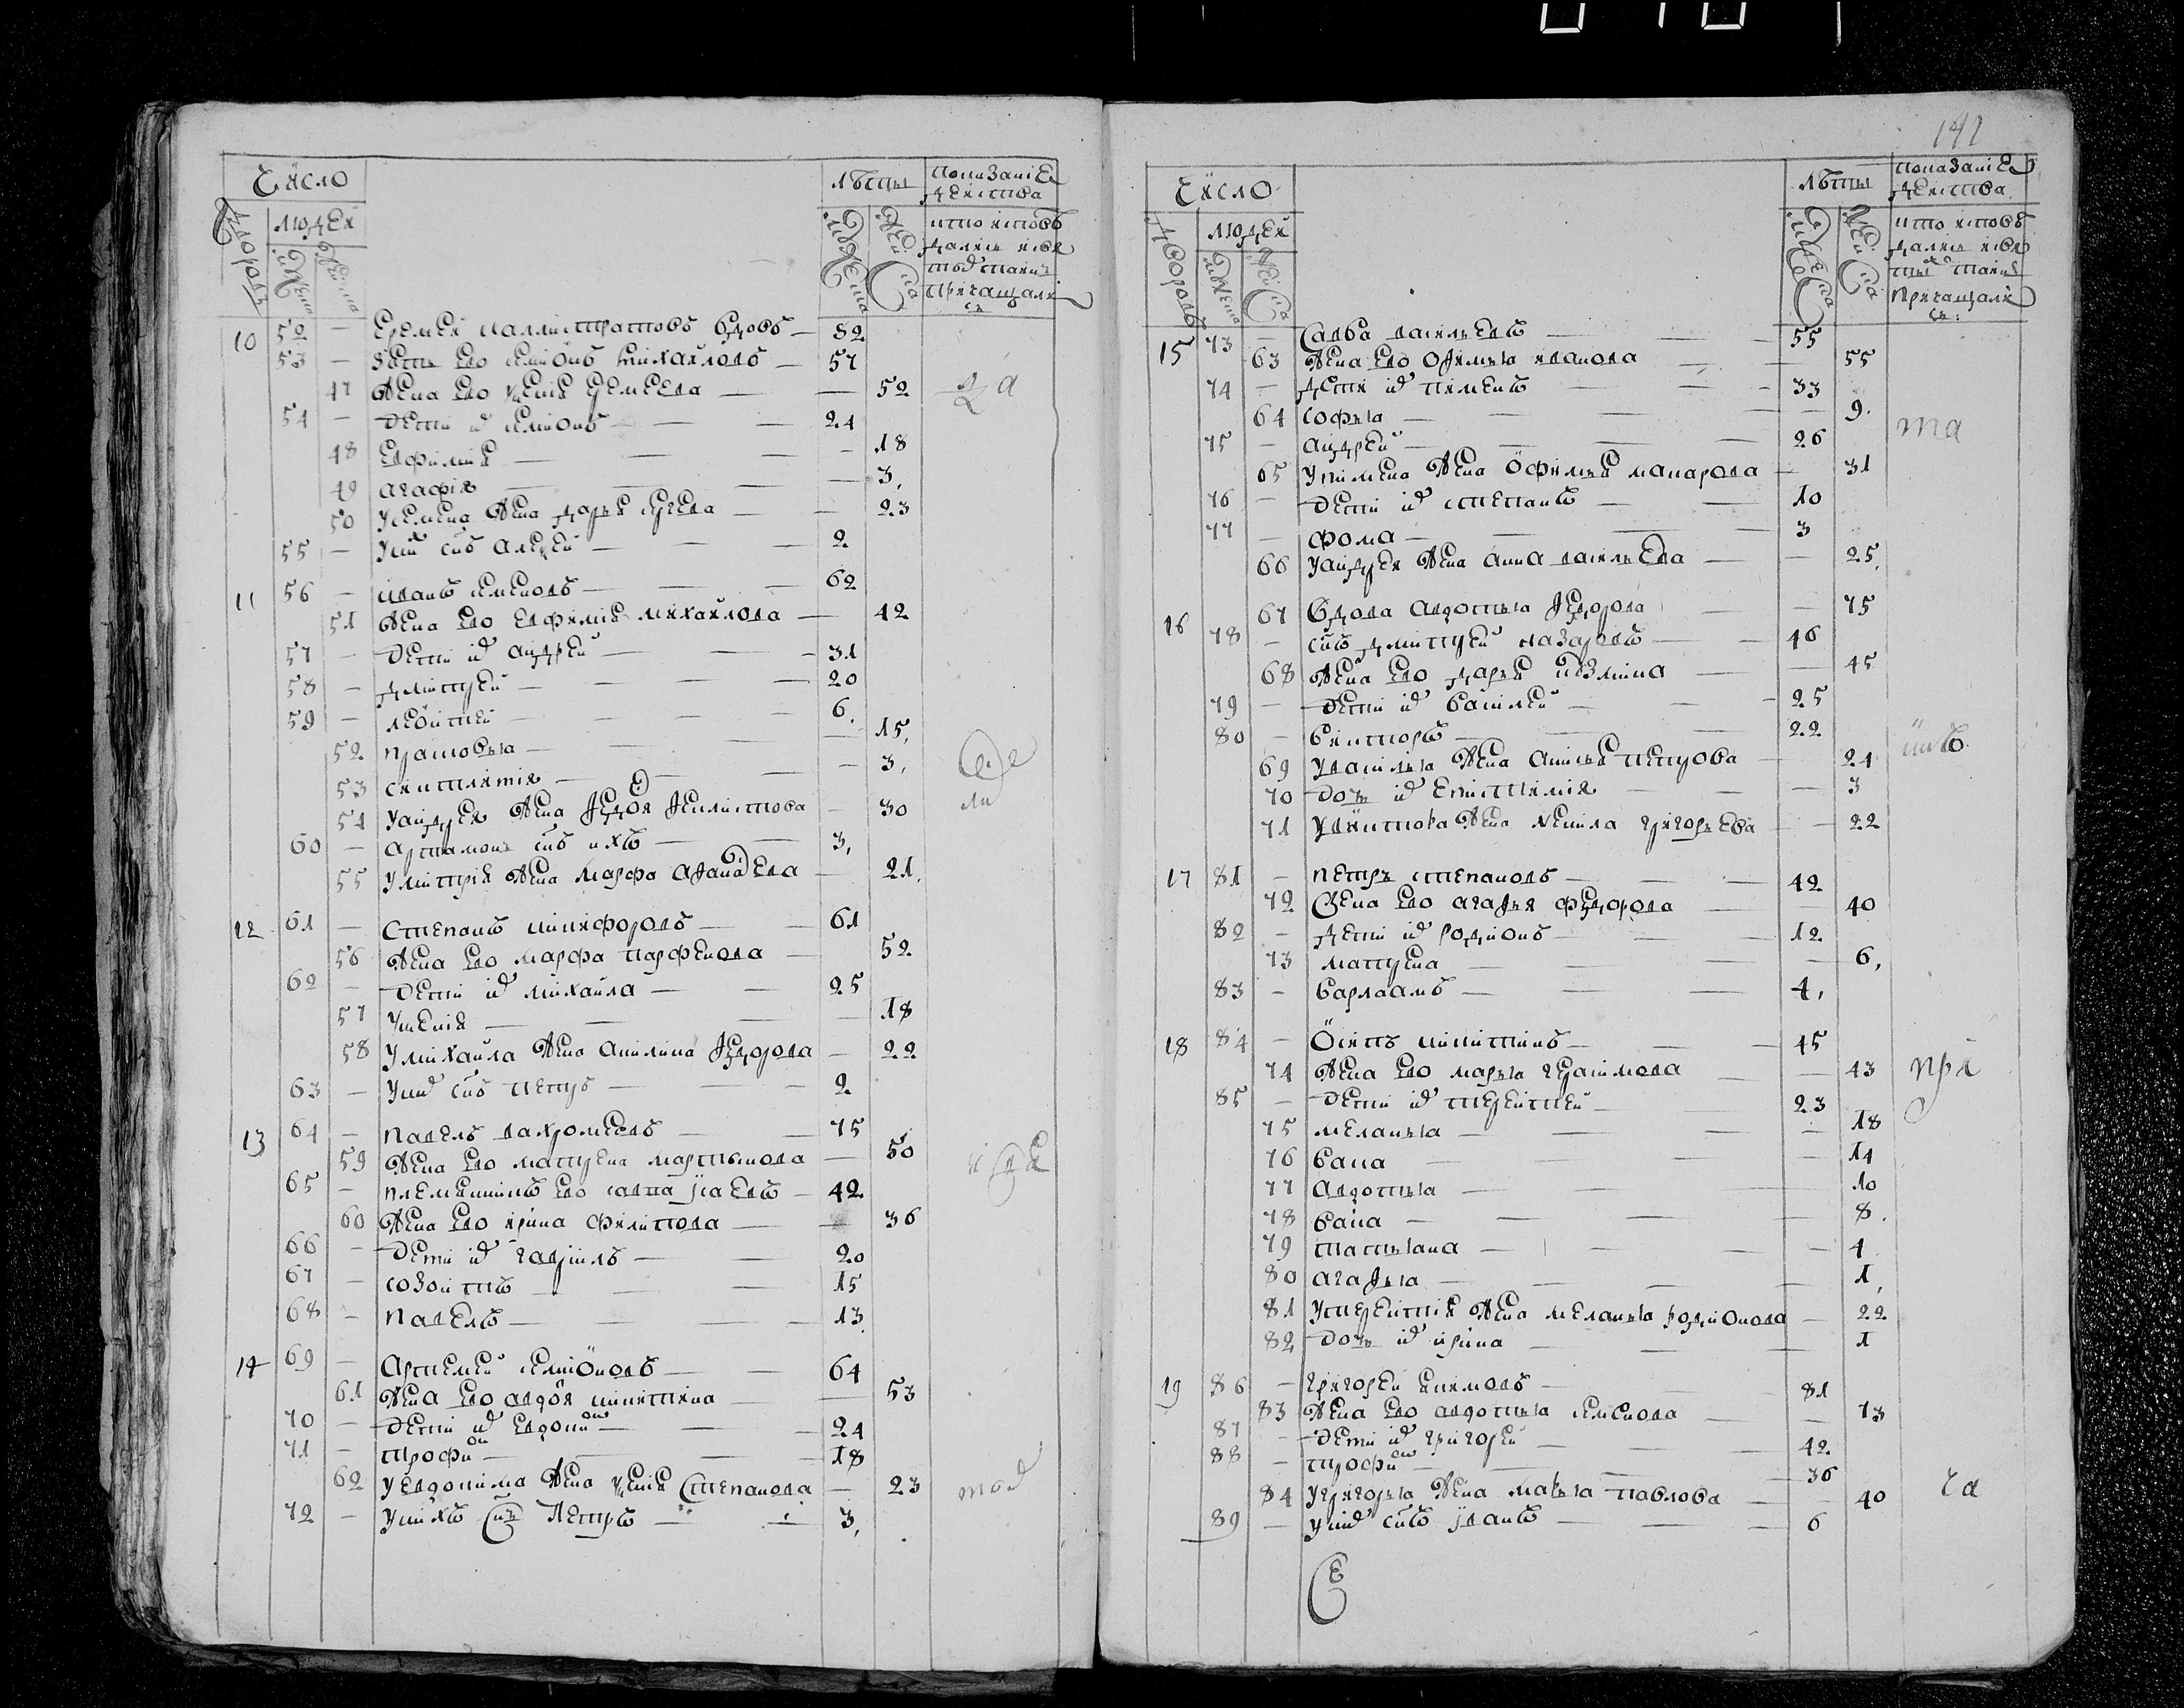 Число
лѣты
показаніе
действа
дворовъ
людей
мужеска
женска
мужеска
женска
кто исповѣ
дались и свя
тыхъ таинъ
причащали
сь
10 52 — Еремей каллистратовъ вдовъ — 82
53 — зять ево семіонъ михайловъ — 57
47 жена ево ѯенія еремеева — 52
54 — дети их семіонъ — 24
48 евфимия — 18
49 агафія — 3
50 у семена жена дарья сергева — 23
55 — у них снъ алеѯей — 2
11 56 — иванъ семеновъ — 62
51 жена ево евфимія михайлова — 42
57 — дети их андрей — 31
58 — дмитрей — 20
59 — леонтей — 6
52 прасковья — 15
53 сенклитія — 3
54 у андрея жена федося феклистова — 30
60 — артамонъ снъ ихъ — 3
55 у митрія жена марфа афанасева — 21
12 61 — степанъ никифоровъ — 61
56 жена ево марфа парфенова — 52
62 — дети их михайла — 25
57 ѯенія — 18
58 у михайла жена акилина федорова — 22
63 — у них снъ петръ — 2
13 64 — павелъ вахромеевъ — 75
59 жена ево матрена мартынова — 50
65 — племянникъ ево савва ісаевъ — 42
60 жена ево ирина филипова — 36
66 — дети их гаврилъ — 20
67 — созонтъ — 15
68 — павелъ — 13
14 69 — Артемей семіоновъ — 64
61 жена ево авдотя никитина — 53
70 — дети их евдоким — 24
71 — трофим — 18
62 у евдокима жена ѯенія степанова — 23
72 — у нихъ снъ Петръ — 3
141
Число
лѣты
показаніе
действа
дворовъ
людей
мужеска
женска
мужеска
женска
кто исповѣ
дались и свя
тыхъ таинъ
причащали
сь
15 73 — Савва васильевъ — 55
63 жена ево офимья иванова — 55
74 — дети их пименъ — 33
64 софья — 9
75 — андрей — 26
65 у пимена жена офимья макарова — 31
76 — дети их степанъ — 10
77 — фома — 3
66 у андрея жена анна васильева — 25
16 67 вдова авдотья федорова — 75
78 — снъ дмитрей назаровъ — 46
68 жена ево дарья козмина — 45
79 — дети их василей — 25
80 — викторъ — 22
69 у василья жена анисья петрова — 24
70 дочь их епистимія — 3
71 у виктора жена некила григорьева — 22
17 81 — петръ степановъ — 42
72 жена ево агафья федорова — 40
82 — дети их родионъ — 12
73 матрена — 6
83 — варлаамъ — 4
18 84 — Осипъ никитинъ — 45
74 жена ево марья герасимова — 43
85 — дети их терентей — 23
75 меланья — 18
76 васа — 14
77 авдотья — 10
78 васа — 8
79 татьяна — 4
80 агафья — 1
81 у терентія жена меланья родионова — 22
82 дочь их ирина — 1
19 86 — григорей екимовъ — 81
83 жена ево авдотья семенова — 73
87 — дети их григорей — 42
88 — трофим — 36
84 у григорья жена марья павлова — 40
89 — у них снъ іванъ — 6